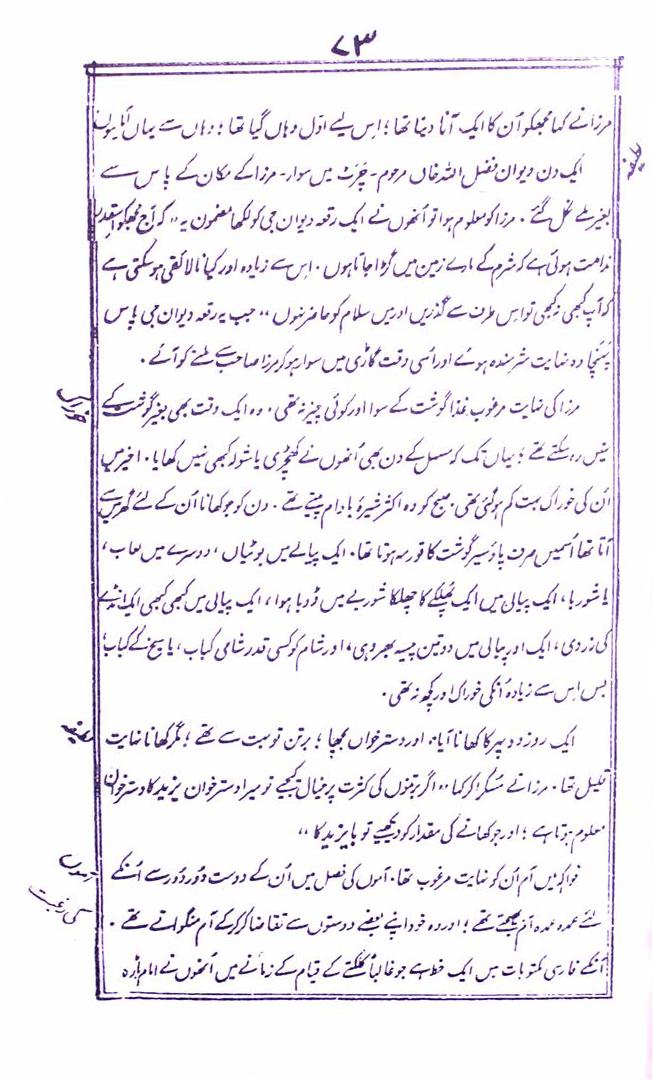 ۷۳
مرزا نے کہا مجھکو اُن کا ایک آنا دینا تھا؛ اِس لیے اوّل وہاں گیا تھا؛ وہاں سے یہاں آیا ہوں
لطیفہ
ایک دن دیوان فضل اللہ خاں مرحوم - چَرَٹ میں سوار - مرزا کے مکان کے پاس سے
بغیر ملے نکل گئے ۔ مرزا کو معلوم ہوا تو اُنھوں نے ایک رقعہ دیوان جی کو لکھا مضمون یہ "کہ آج مجھکو اِسقدر
ندامت ہوئی ہے کہ شرم کے مارے زمین میں گڑا جاتا ہوں ۔ اس سے زیادہ اور کیا نالائقی ہو سکتی ہے
کہ آپ کبھی نہ کبھی تو اس طرف سے گذریں اور میں سلام کو حاضر نہوں،، جب یہ رقعہ دیوان جی پاس
پہنچا وہ نہایت شرمندہ ہوے اور اُسی وقت گاڑی میں سوار ہو کر مرزا صاحب سے ملنے کو آئے ۔
خوراک
مرزا کی نہایت مرغوب غذا گوشت کے سوا اور کوئی چیز نہ تھی ۔ وہ ایک وقت بھی بغیر گوشت کے
نہیں رہ سکتے تھے؛ یہاں تک کہ مسہل کے دن بھی اُنھوں نے کھچڑی یا شولہ کبھی نہیں کھایا ۔ اخیر میں
اُن کی خوراک بہت کم ہو گئی تھی ۔ صبح کو وہ اکثر شیرۂ بادام پیتے تھے ۔ دن کو جو کھانا اُن کے لئے گھر میں سے
آتا تھا اُسمیں صرف پاؤ سیر گوشت کا قورمہ ہوتا تھا ۔ ایک پیالے میں بوٹیاں، دوسرے میں لعاب،
یا شوربا، ایک پیالی میں ایک پھلکے کا چھلکا شوربے میں ڈوبا ہوا، ایک پیالی میں کبھی کبھی ایک انڈے
کی زردی، ایک اور پیالی میں دو تین پیسہ بھر دہی، اور شام کو کسی قدر شامی کباب، یا سیخ کے کباب؛
بس اِس سے زیادہ اُنکی خوراک اور کچھ نہ تھی ۔
لطیفہ
ایک روز دوپہر کا کھانا آیا، اور دسترخواں بچھا؛ برتن تو بہت سے تھے؛ مگر کھانا نہایت
قلیل تھا ۔ مرزا نے مسکرا کر کہا "اگر برتنوں کی کثرت پر خیال کیجیے تو میرا دسترخوان یزید کا دسترخوان
معلوم ہوتا ہے؛ اور جو کھانے کی مقدار کو دیکھیے تو بایزید کا،،
فواکہ میں آم اُن کو نہایت مرغوب تھا ۔ آموں کی فصل میں اُن کے دوست دُور دُور سے اُنکے
کی رغبت
لئے عمدہ عمدہ آم بھیجتے تھے؛ اور وہ خود اپنے بعضے دوستوں سے تقاضا کر کر کے آم منگواتے تھے ۔
اُنکے فارسی مکتوبات میں ایک خط ہے جو غالباً کلکتے کے قیام کے زمانے میں اُنھوں نے امام باڑہ